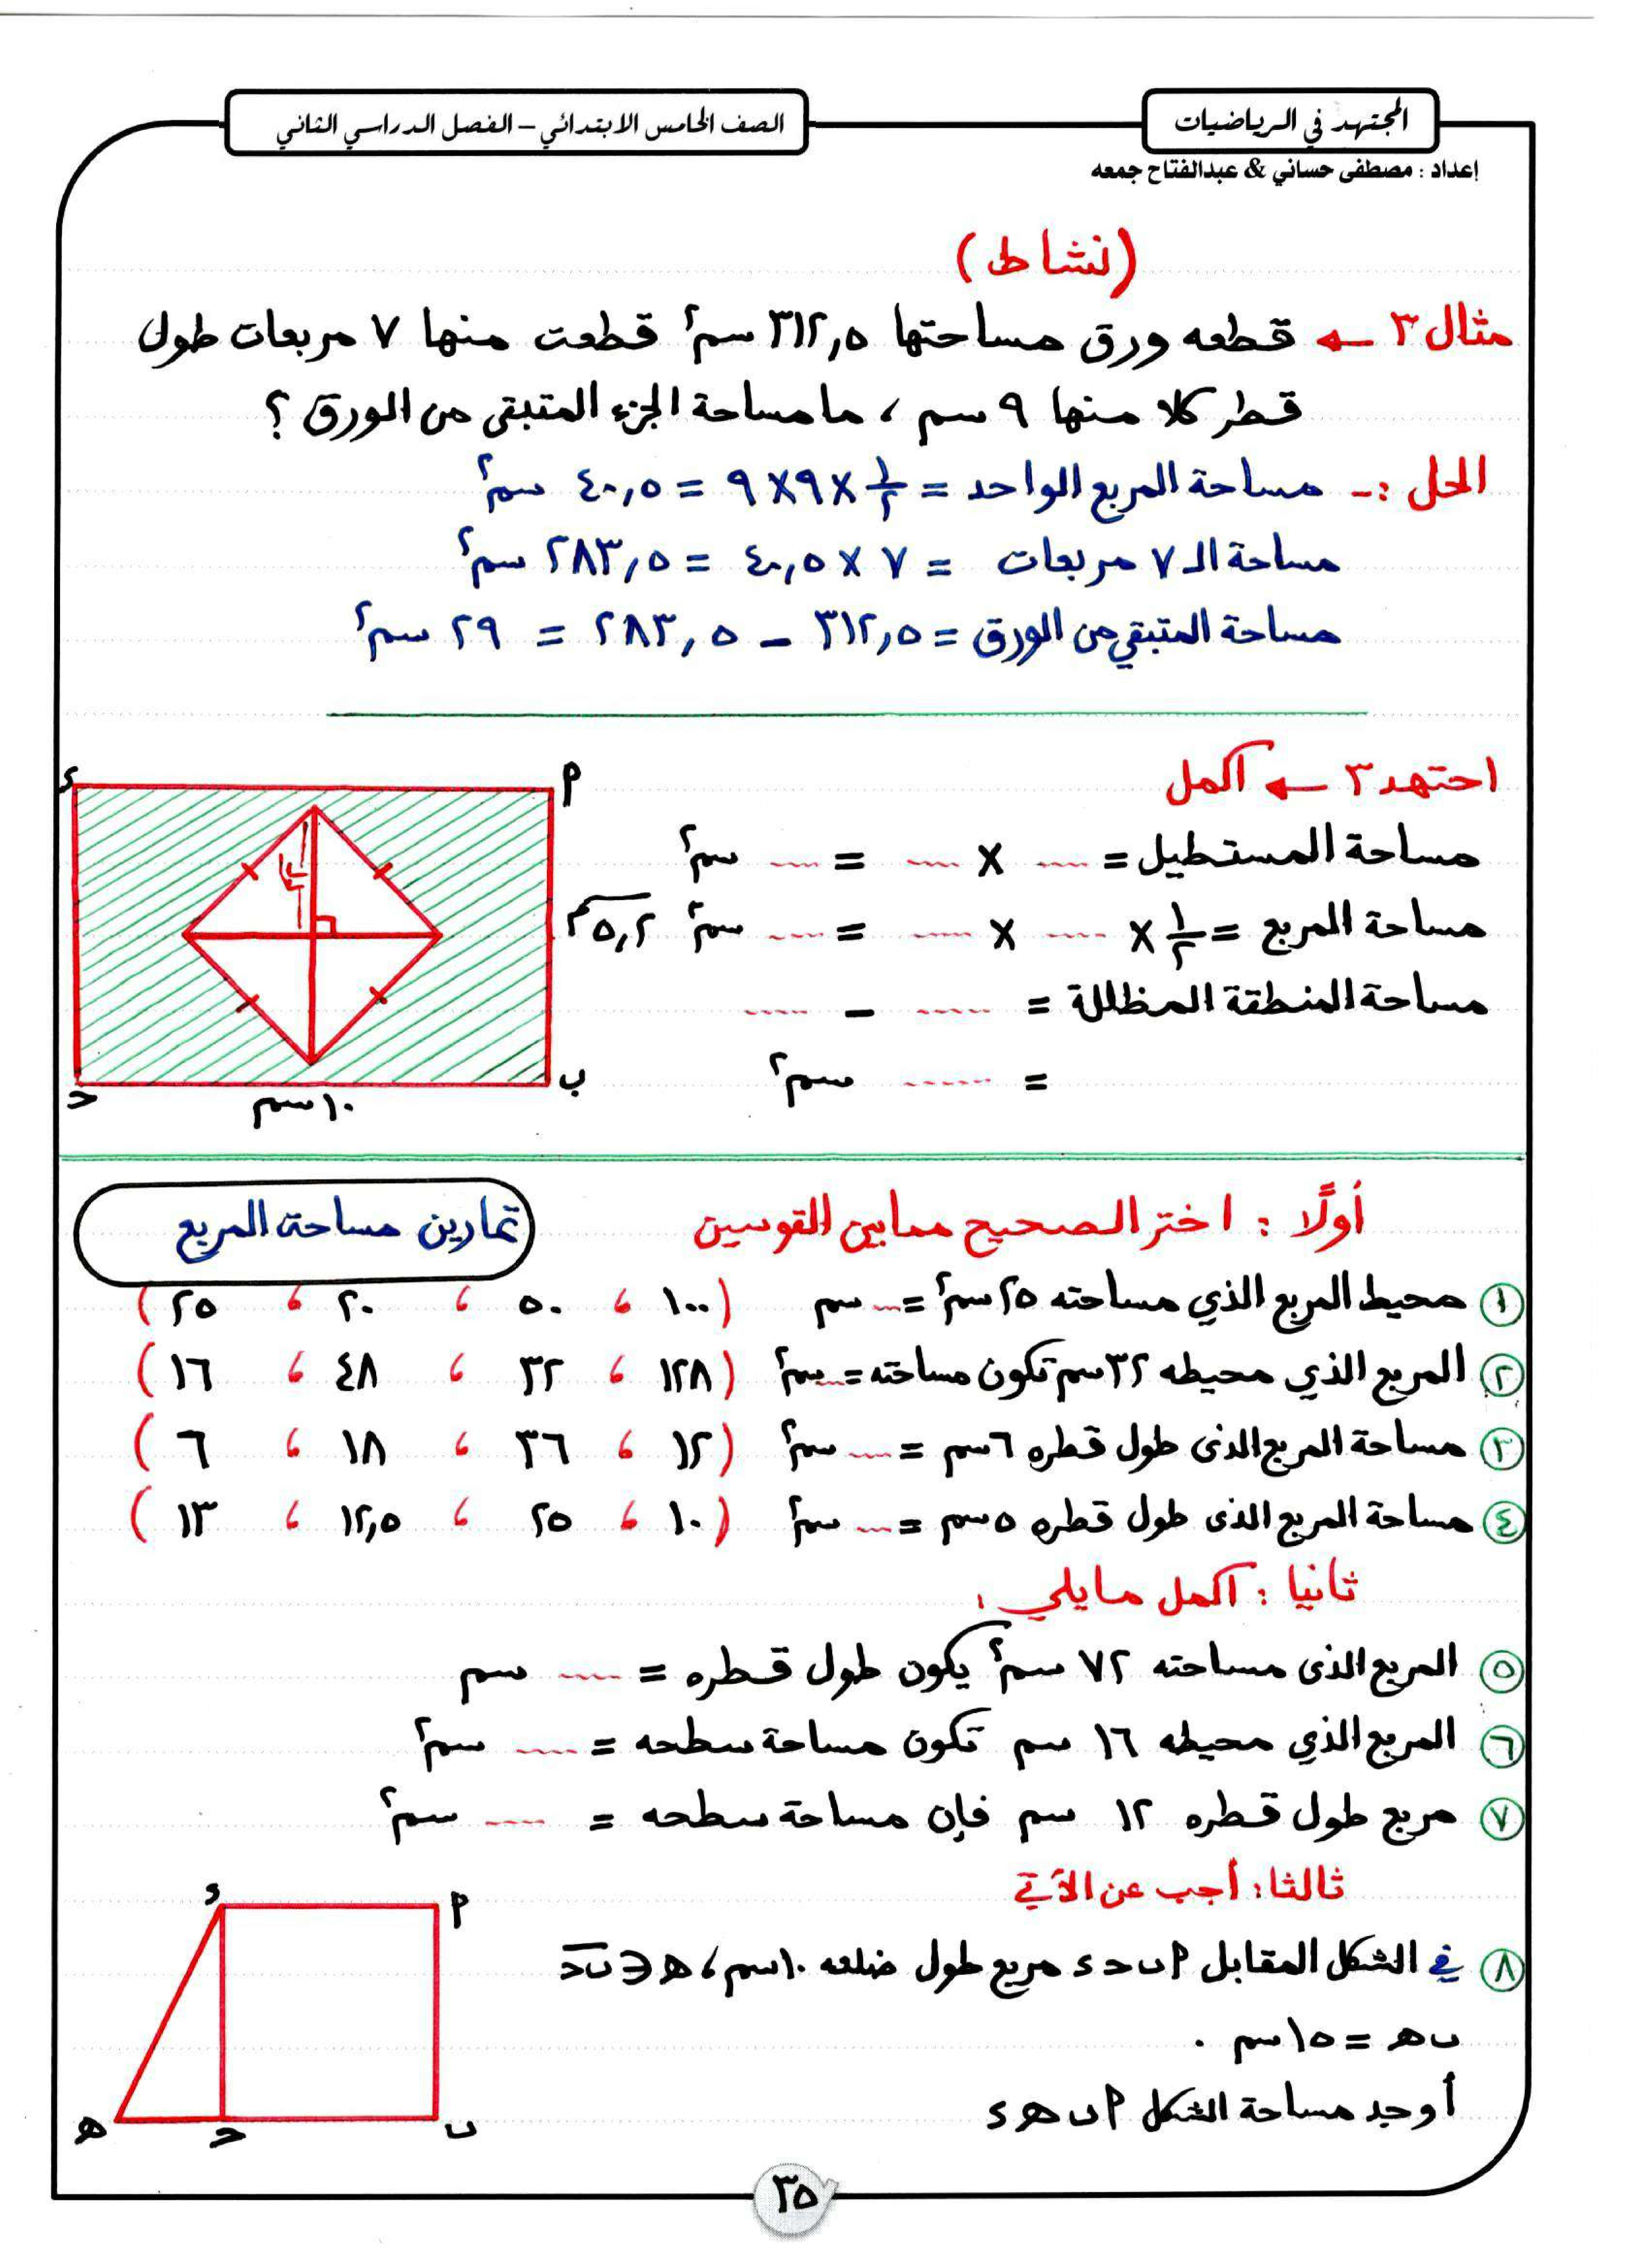 المجتهد في الرياضيات
الصف الخامس الابتدائي – الفصل الدراسي الثاني
إعداد : مصطفى حساني & عبدالفتاح جمعه
(نشاط)
مثال ٣ ← قطعه ورق مساحتها ٣١٢,٥ سم٢ قطعت منها ٧ مربعات طول
قطر كلا منها ٩ سم ، ما مساحة الجزء المتبقى من الورق ؟
الحل :- مساحة المربع الواحد = ١/٢ × ٩ × ٩ = ٤٠,٥ سم٢
مساحة الـ ٧ مربعات = ٧ × ٤٠,٥ = ٢٨٣,٥ سم٢
مساحة المتبقي من الورق = ٣١٢,٥ – ٢٨٣,٥ = ٢٩ سم٢
اجتهد ٣ ← أكمل
مساحة المستطيل = .... × .... = .... سم٢
مساحة المربع = ١/٢ × .... × .... = .... سم٢
مساحة المنطقة المظللة = ..... – .....
= ...... سم٢
P
ء
ب
ح
١٠ سم
أولًا : اختر الصحيح مما بين القوسين
تمارين مساحة المربع
١ محيط المربع الذي مساحته ٢٥ سم٢ = ... سم (١٠٠ ، ٥٠ ، ٢٠ ، ٢٥)
٢ المربع الذي محيطه ٣٢ سم تكون مساحته = ... سم٢ (١٢٨ ، ٣٢ ، ٤٨ ، ١٦)
٣ مساحة المربع الذى طول قطره ٦ سم = ... سم٢ (١٢ ، ٣٦ ، ١٨ ، ٦)
٤ مساحة المربع الذى طول قطره ٥ سم = ... سم٢ (١٠ ، ٢٥ ، ١٢,٥ ، ١٣)
ثانيا : أكمل ما يلي :
٥ المربع الذى مساحته ٧٢ سم٢ يكون طول قطره = .... سم
٦ المربع الذي محيطه ١٦ سم تكون مساحة سطحه = .... سم٢
٧ مربع طول قطره ١٢ سم فإن مساحة سطحه = .... سم٢
ثالثا : أجب عن الآتي
٨ في الشكل المقابل P ب ح ء مربع طول ضلعه ١٠ سم ، ه ∈ ب ح
ب ه = ١٥ سم .
أوجد مساحة الشكل P ب ه ء
P
ء
ب
ح
ه
٣٥